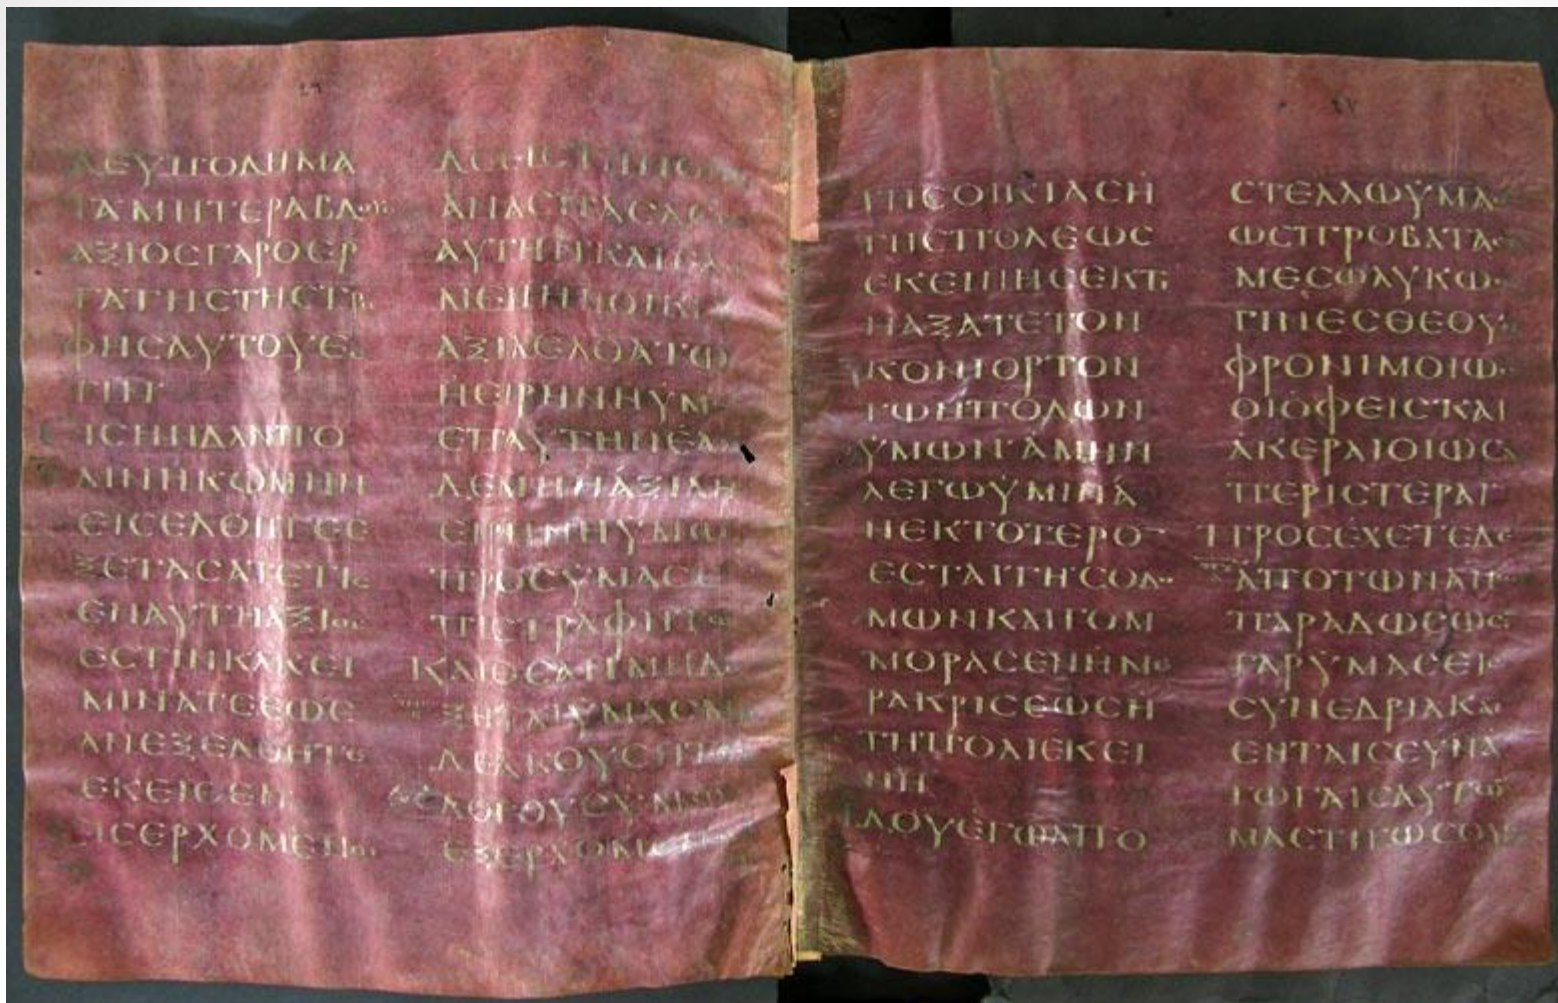 ΔΕΥΠΟΔΗΜΑ
ΤΑΜΗΤΕΡΑΒΔΟΥϹ
ΑΞΙΟϹΓΑΡΟΕΡ
ΓΑΤΗϹΤΗϹΤΡΟ
ΦΗϹΑΥΤΟΥΕϹ
ΤΙΝ
ΕΙϹΗΝΔΑΝΠΟ
ΛΙΝΗΚΩΜΗΝ
ΕΙϹΕΛΘΗΤΕΕ
ΞΕΤΑϹΑΤΕΤΙϹ
ΕΝΑΥΤΗΑΞΙΟϹ
ΕϹΤΙΝΚΑΚΕΙ
ΜΙΝΑΤΕΕΩϹ
ΑΝΕΞΕΛΘΗΤΕ
ΕΚΕΙΘΕΝ
ΕΙϹΕΡΧΟΜΕΝΟΙ
ΔΕΕΙϹΤΗΝΟΙΚΙ
ΑΝΑϹΠΑϹΑϹΘΕ
ΑΥΤΗΝΚΑΙΕΑΝ
ΜΕΝΗΗΟΙΚΙΑ
ΑΞΙΑΕΛΘΑΤΩ
ΗΕΙΡΗΝΗΥΜΩ
ΕΠΑΥΤΗΝΕΑΝ
ΔΕΜΗΗΑΞΙΑΗ
ΕΙΡΗΝΗΥΜΩ
ΠΡΟϹΥΜΑϹΕ
ΠΙϹΤΡΑΦΗΤΩ
ΚΑΙΟϹΑΝΜΗΔΕ
ΞΗΤΑΙΥΜΑϹΜΗ
ΔΕΑΚΟΥϹΗΤΟΥϹ
ΛΟΓΟΥϹΥΜΩ
ΕΞΕΡΧΟΜΕΝΟΙ
ΤΗϹΟΙΚΙΑϹΗ
ΤΗϹΠΟΛΕΩϹ
ΕΚΕΙΝΗϹΕΚΤΙ
ΝΑΞΑΤΕΤΟΝ
ΚΟΝΙΟΡΤΟΝ
ΤΩΝΠΟΔΩΝ
ΫΜΩΝΑΜΗΝ
ΛΕΓΩΫΜΙΝΑ
ΝΕΚΤΟΤΕΡΟ
ΕϹΤΑΙΓΗϹΟΔΟ
ΜΩΝΚΑΙΓΟΜ
ΜΟΡΑϹΕΝΗΜΕ
ΡΑΚΡΙϹΕΩϹΗ
ΤΗΠΟΛΙΕΚΕΙ
ΝΗ
ΙΔΟΥΕΓΩΑΠΟ
ϹΤΕΛΛΩΫΜΑϹ
ΩϹΠΡΟΒΑΤΑΕΝ
ΜΕϹΩΛΥΚΩΝ
ΓΙΝΕϹΘΕΟΥΝ
ΦΡΟΝΙΜΟΙΩϹ
ΟΙΟΦΕΙϹΚΑΙ
ΑΚΕΡΑΙΟΙΩϹΑΙ
ΠΕΡΙϹΤΕΡΑΙ
ΠΡΟϹΕΧΕΤΕΔΕ
ΑΠΟΤΩΝΑΝ
ΠΑΡΑΔΩϹΩϹΙ
ΓΑΡΫΜΑϹΕΙϹ
ϹΥΝΕΔΡΙΑΚΑΙ
ΕΝΤΑΙϹϹΥΝΑ
ΓΩΓΑΙϹΑΥΤΩ
ΜΑϹΤΙΓΩϹΟΥ